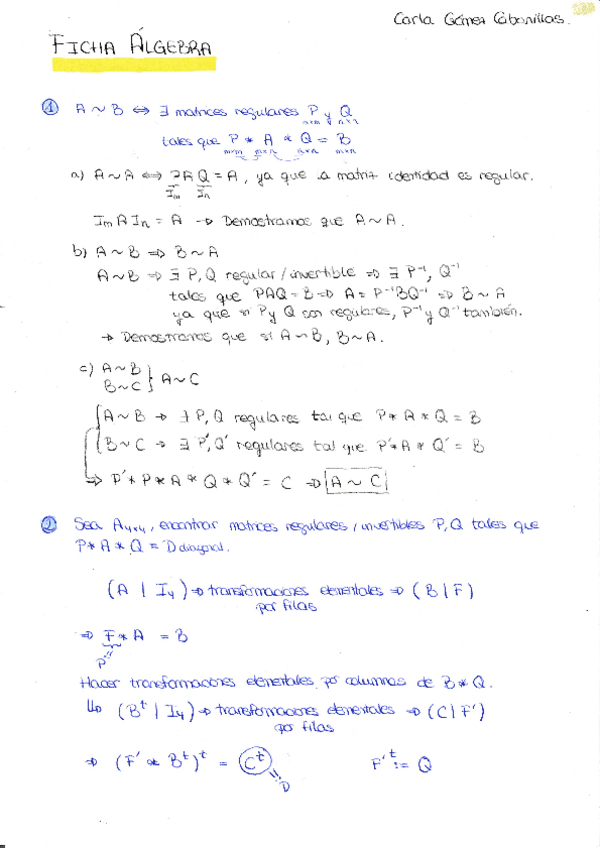 Carla Gómez Cobanillas.
FICHA ÁLGEBRA
① A ~ B ⇔ ∃ matrices regulares P y Q
m×m n×n
tales que P * A * Q = B
m×m m×n n×n m×n
a) A ~ A ⇔ PAQ = A, ya que a matriz identidad es regular.
Im In
Im A In = A → Demostramos que A ~ A.
b) A ~ B ⇒ B ~ A
A ~ B ⇒ ∃ P, Q regular / invertible ⇒ ∃ P⁻¹, Q⁻¹
tales que PAQ = B ⇒ A = P⁻¹BQ⁻¹ ⇒ B ~ A
ya que si P y Q son regulares, P⁻¹ y Q⁻¹ también.
→ Demostramos que si A ~ B, B ~ A.
c) A ~ B
B ~ C } A ~ C
A ~ B → ∃ P, Q regulares tal que P * A * Q = B
B ~ C → ∃ P', Q' regulares tal que P' * A * Q' = B
⇒ P' * P * A * Q * Q' = C ⇒ A ~ C
② Sea A4x4, encontrar matrices regulares / invertibles P, Q tales que
P * A * Q = D diagonal.
(A | I4) → transformaciones elementales ⇒ (B | F)
por filas
⇒ F * A = B
P'
Hacer transformaciones elementales por columnas de B * Q.
↳ (Bᵗ | I4) → transformaciones elementales ⇒ (C | F')
por filas
⇒ (F' * Bᵗ)ᵗ = Cᵗ F'ᵗ := Q
D